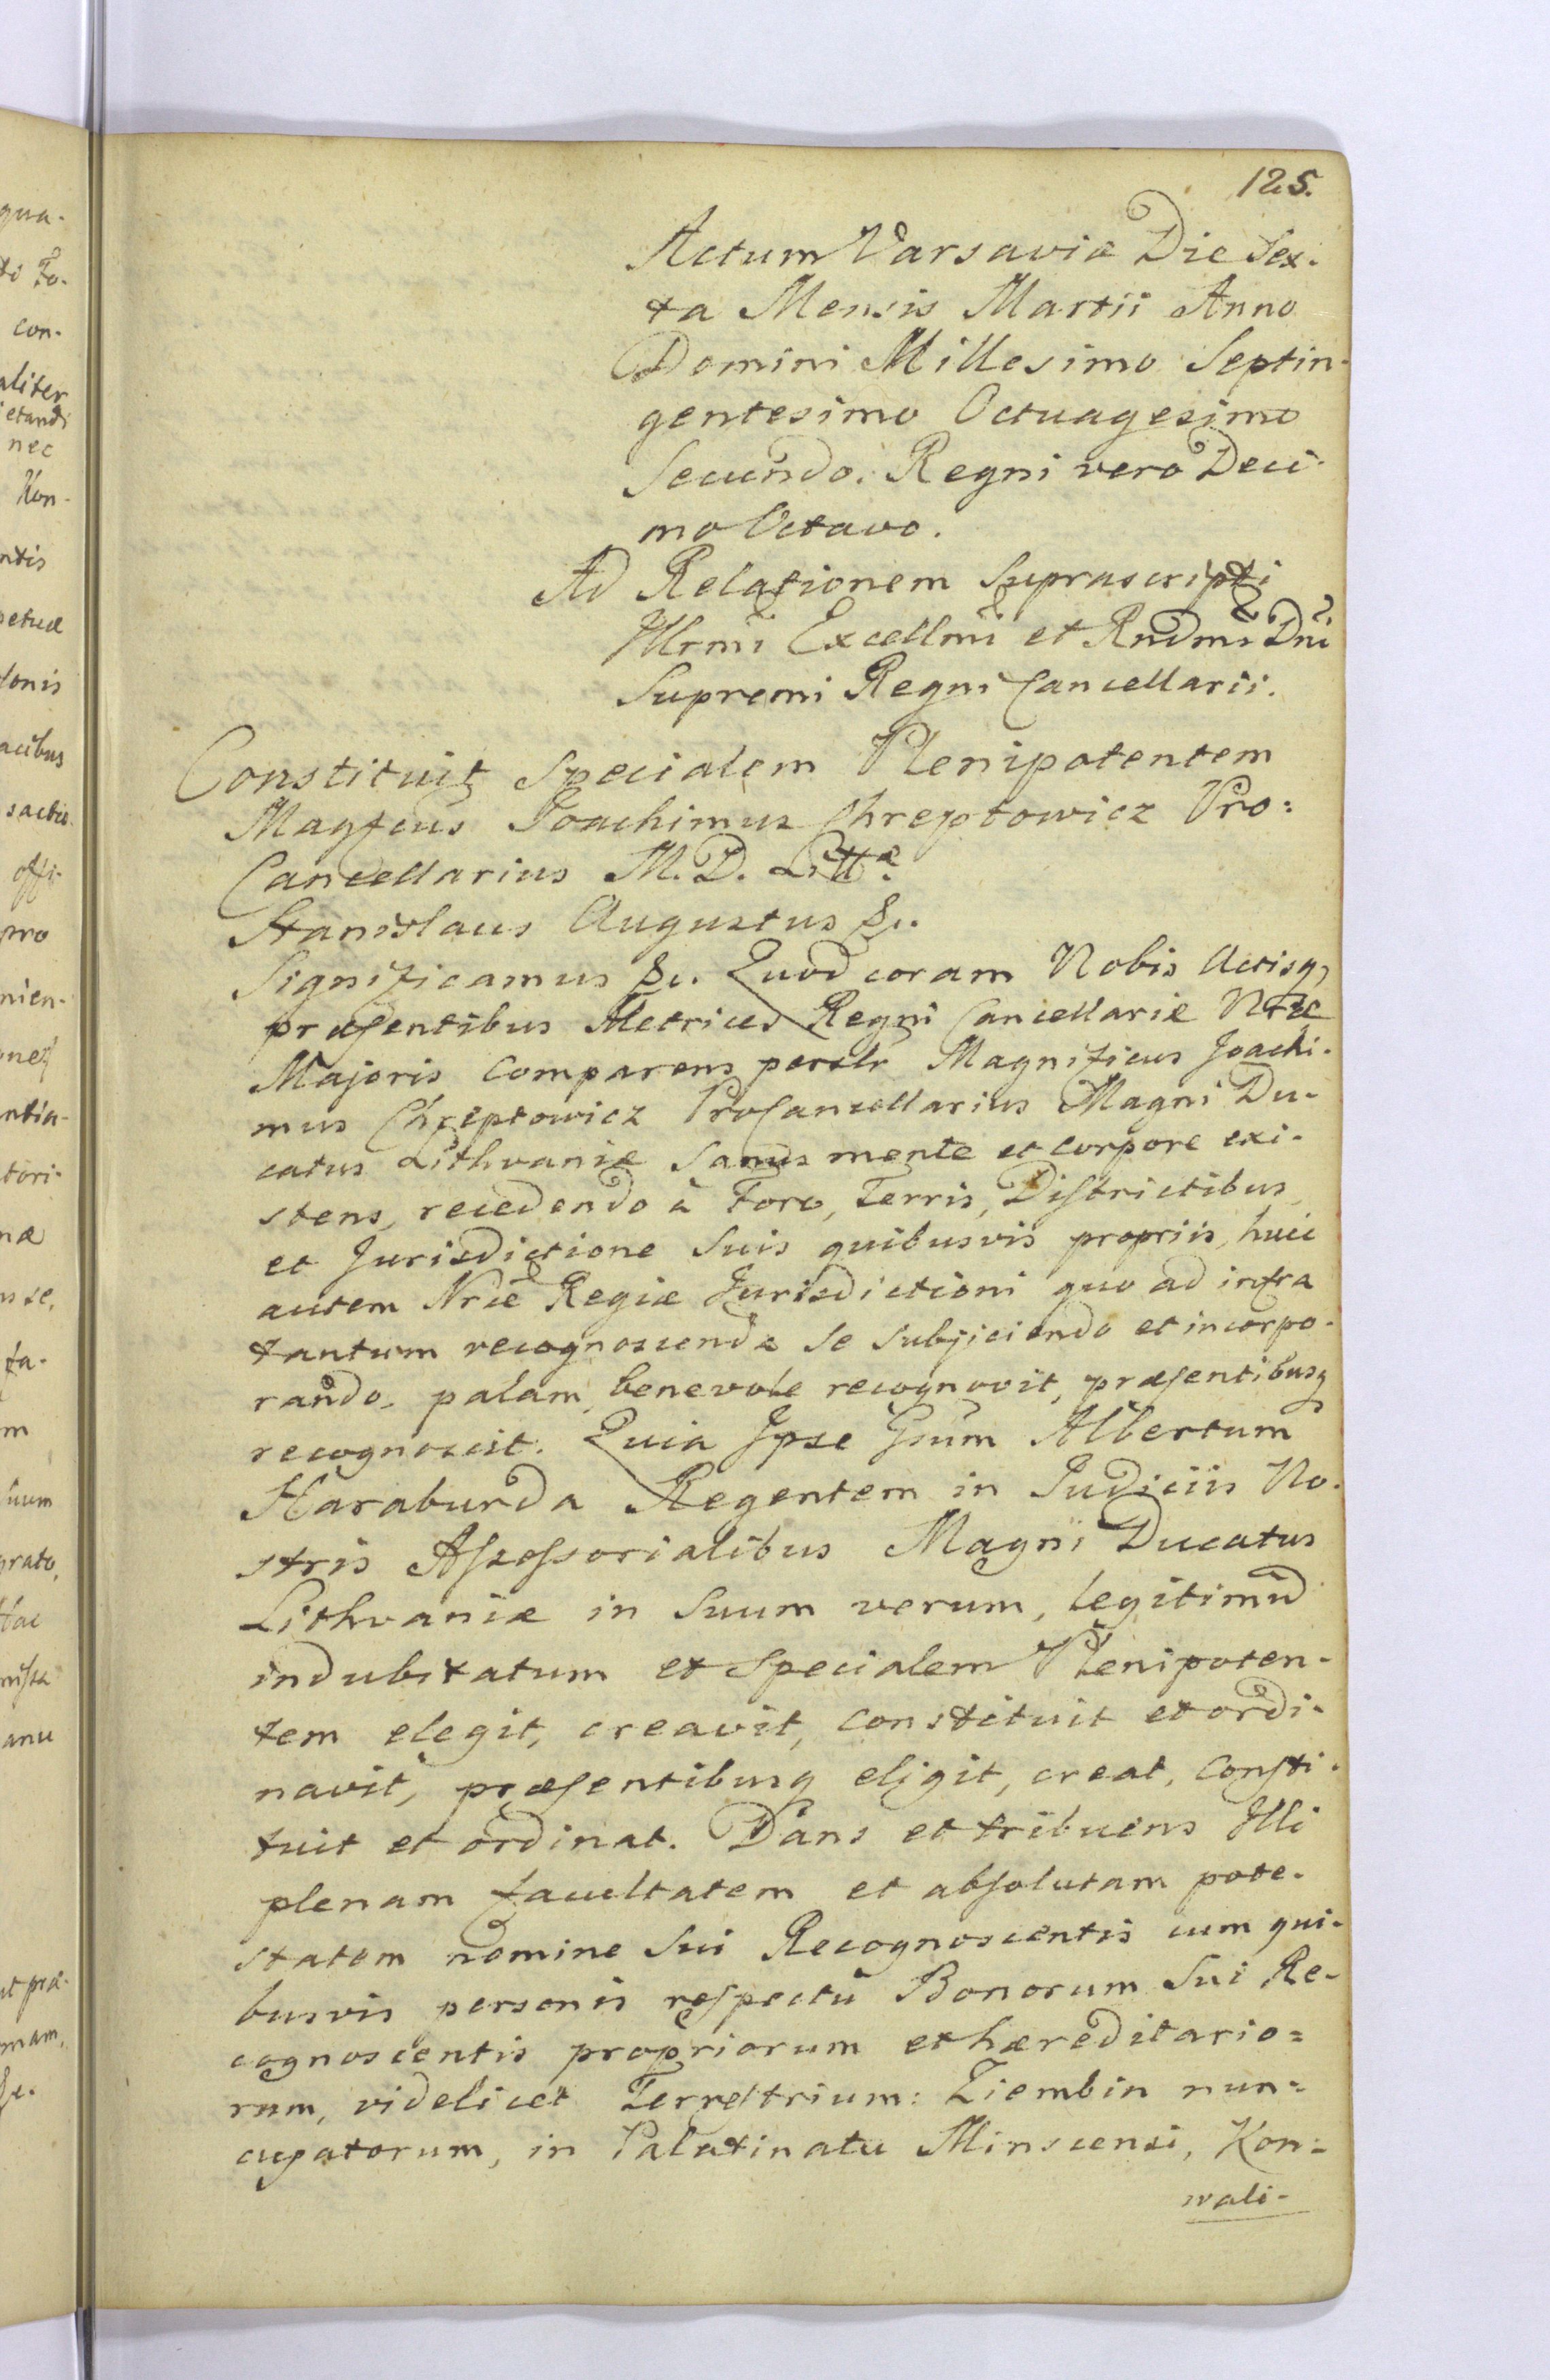 125.
Actum Varsaviæ Die Sex-
ta Mensis Martii Anno
Domini Millesimo Septin-
gentesimo Octuagesimo
Secundo. Regni vero Deci-
mo Octavo.
Ad Relationem Suprascripti
Illrmi Excellmi et Rndmi Dni
Supremi Regni Cancellarii.
Constituit Specialem Plenipotentem
Magfcus Joachimus Chreptowicz Pro=
Cancellarius M. D. Littæ.
Stanislaus Augustus &c.
Significamus &c. Quod coram Nobis Actisq
præsentibus Metrices Regni Cancellariæ Nræ
Majoris Comparens persltr Magnificus Joachi-
mus Chreptowicz ProCancellarius Magni Du-
catus Lithvaniæ Sanus mente et corpore exi-
stens, recedendo à Foro, Terris, Districtibus
et Jurisdictione Suis quibusvis propriis, huic
autem Nræ Regiæ Jurisdictioni quo ad infra
tantum recognoscenda Se Subjiciendo et incorpo-
rando, palam, benevole recognovit, præsentibusq
recognoscit. Quia Ipse Gsum Albertum
Haraburda Regentem in Judiciis No-
stris Assessorialibus Magni Ducatus
Lithvaniæ in Suum verum, legitimũ
indubitatum et Specialem Plenipoten-
tem elegit, creavit, constituit et ordi-
navit, præsentibusq eligit, creat, Consti-
tuit et ordinat. Dans et tribuens Illi
plenam facultatem et absolutam pote-
statem nomine Sui Recognoscentis cum qui-
busvis personis respectu Bonorum Sui Re-
cognoscentis propriorum et hæreditario=
rum, videlicet Terrestrium: Ziembin nun=
cupatorum, in Palatinatu Minscensi, Kon=
wali-
qua-
con-
aliter
nec
Kon-
ntis
petuæ
acibus
offi-
pro
nien-
tori-
næ
ta-
m
suum
anu